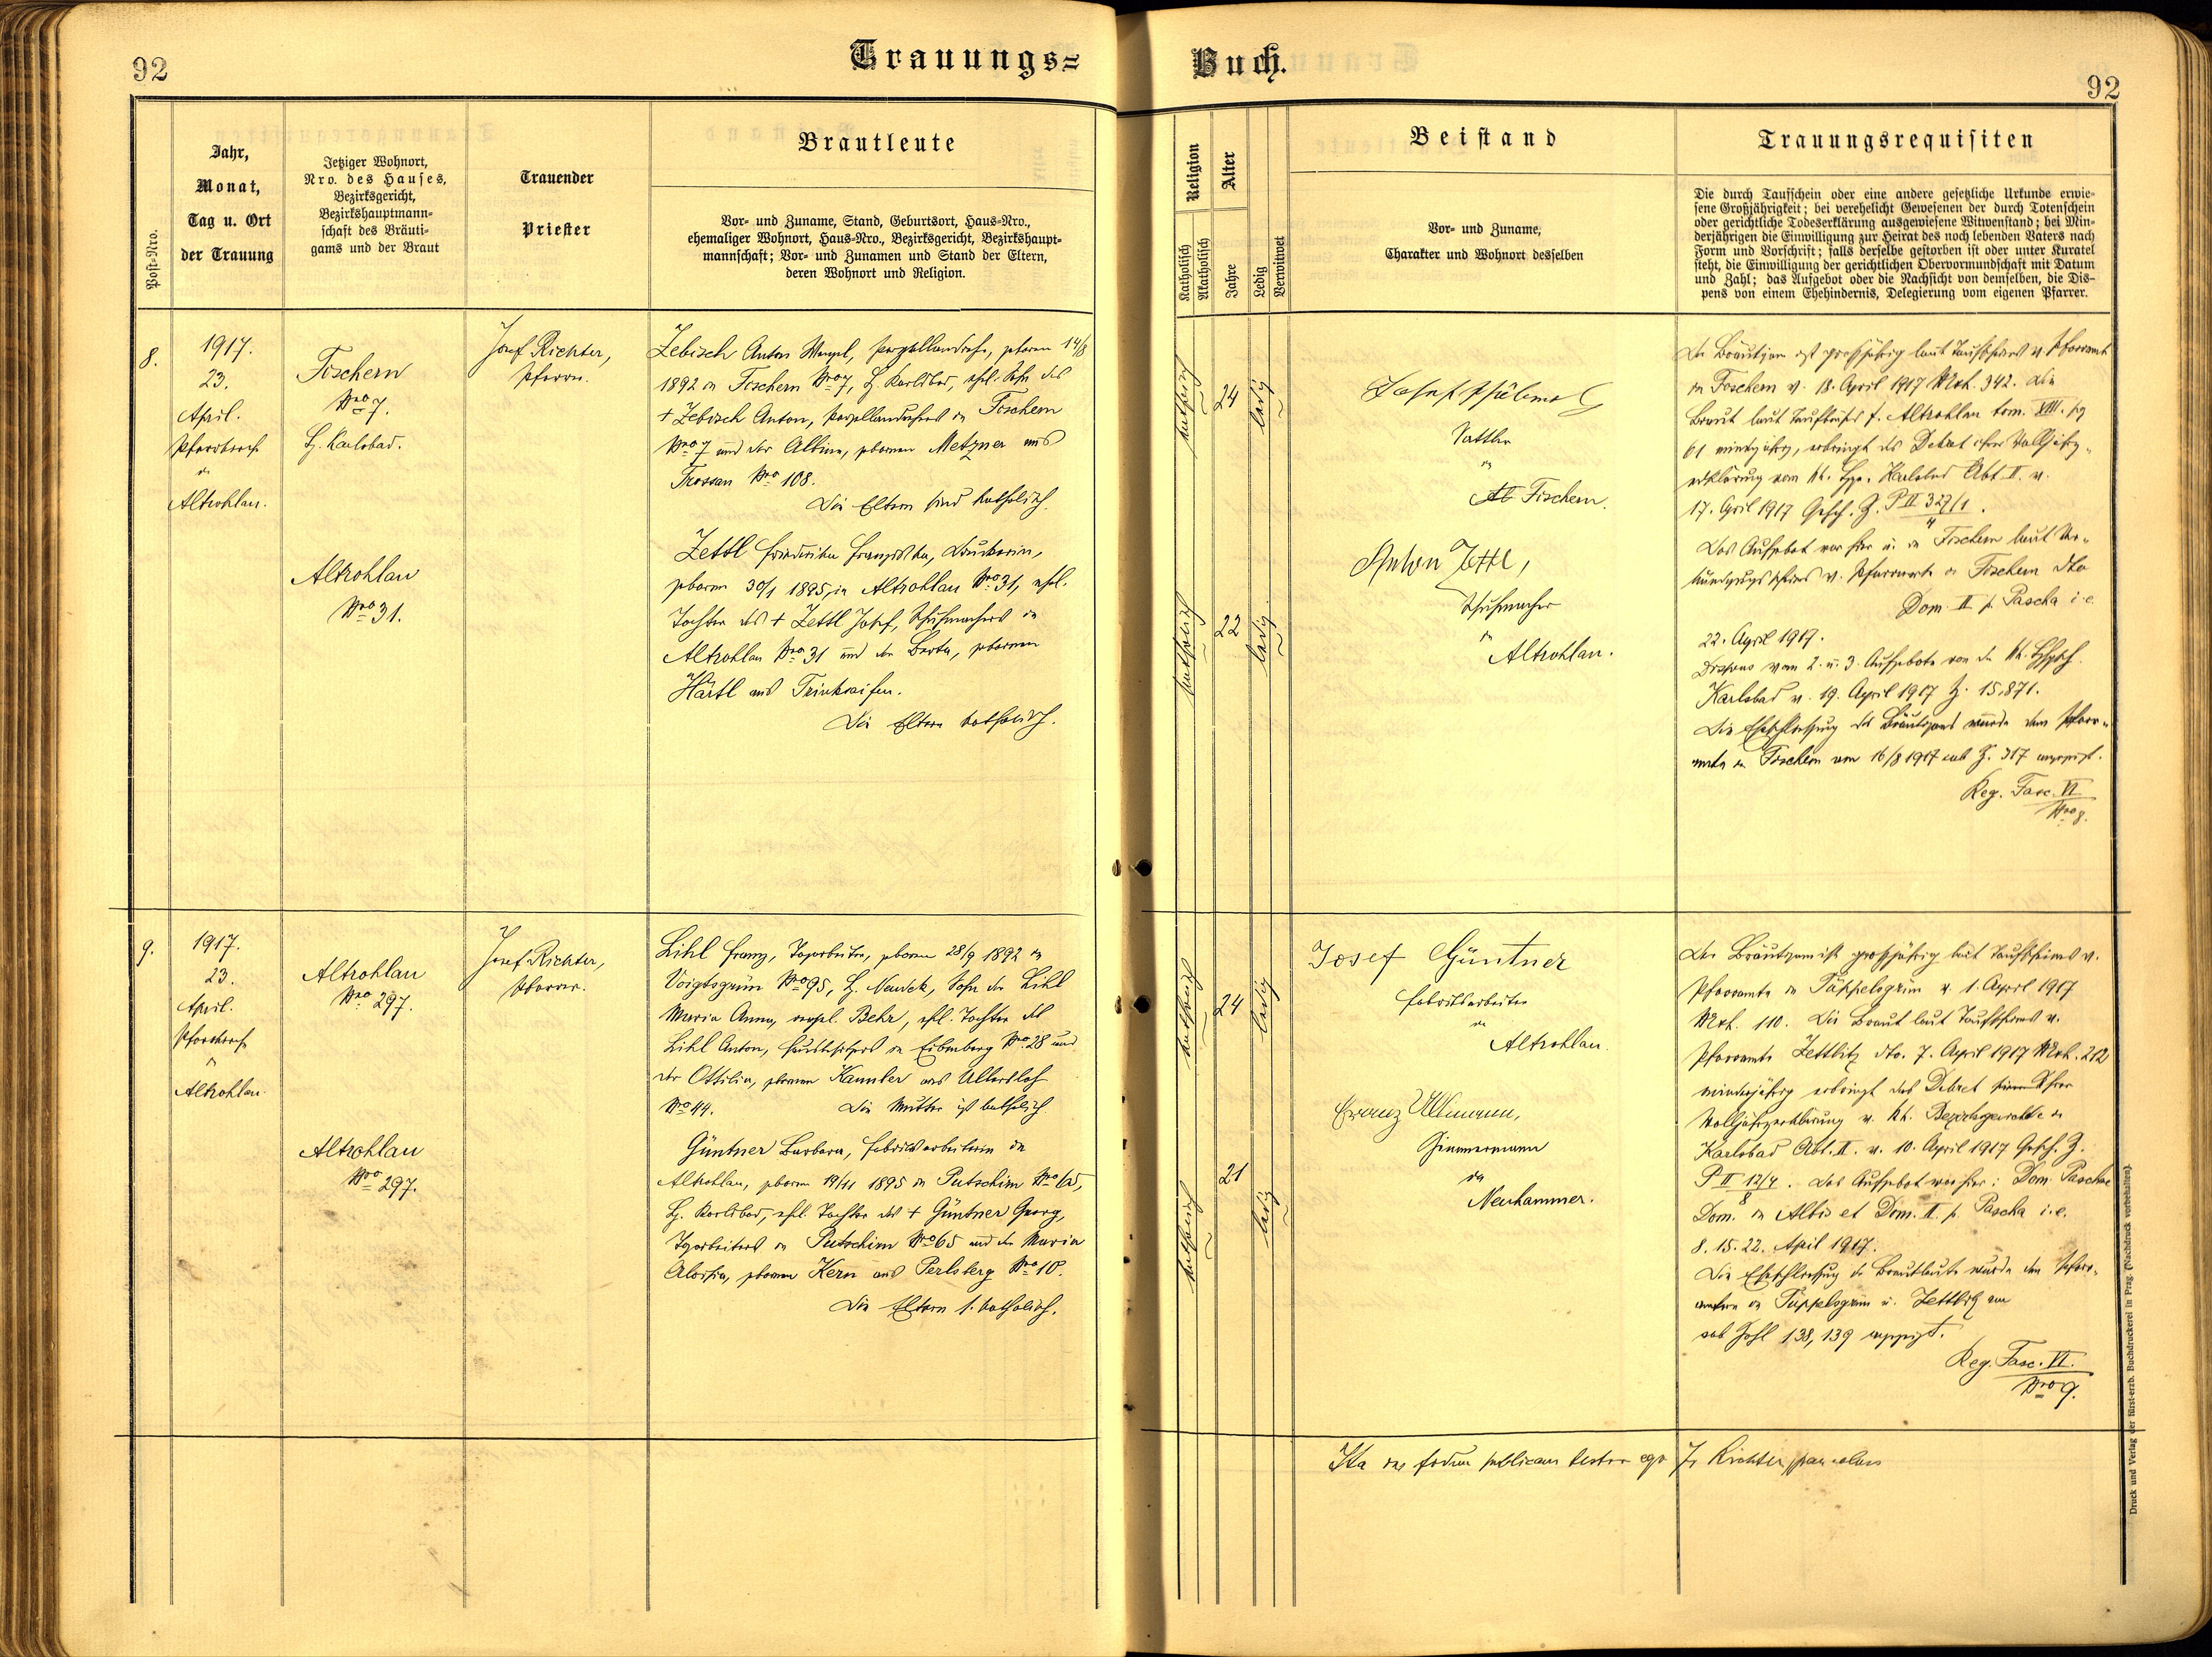 92
Trauungs=
Buch.
92
Post-Nro.
Jahr,
Monat,
Tag u. Ort
der Trauung
Jetziger Wohnort,
Nro. des Hauses,
Bezirksgericht,
Bezirkshauptmann-
schaft des Bräuti-
gams und der Braut
Trauender
Priester
Brautleute
Vor- und Zuname, Stand, Geburtsort, Haus-Nro.,
ehemaliger Wohnort, Haus-Nro., Bezirksgericht, Bezirkshaupt-
mannschaft; Vor- und Zunamen und Stand der Eltern,
deren Wohnort und Religion.
Religion
Katholisch
Akatholisch
Alter
Jahre
Ledig
Verwitwet
Beistand
Vor- und Zuname,
Charakter und Wohnort desselben
Trauungsrequisiten
Die durch Taufschein oder eine andere gesetzliche Urkunde erwie-
sene Großjährigkeit; bei verehelicht Gewesenen der durch Totenschein
oder gerichtliche Todeserklärung ausgewiesene Witwenstand; bei Min-
derjährigen die Einwilligung zur Heirat des noch lebenden Vaters nach
Form und Vorschrift; falls derselbe gestorben ist oder unter Kuratel
steht, die Einwilligung der gerichtlichen Obervormundschaft mit Datum
und Zahl; das Aufgebot oder die Nachsicht von demselben, die Dis-
pens von einem Ehehindernis, Delegierung vom eigenen Pfarrer.
8.
1917.
23.
April.
Pfarrkirche
in
Altrohlau.
Fischern
Nro 7.
H. Karlsbad.
Altrohlau
Nro 31.
Josef Richter,
Pfarrer.
Zebisch Anton Wenzel, Porzellandreher, geboren 14/8
1892 in Fischern Nro 7, H. Karlsbad, ehel. Sohn des
+ Zebisch Anton, Porzellandrehers in Fischern
Nro 7 und der Albina, geborenen Metzner aus
Trossau Nro 108.
Die Eltern sind katholisch.
Zettl Friederika Franziska, Druckerin,
geboren 30/1 1895, in Altrohlau Nro 31, ehel.
Tochter des + Zettl Josef, Schuhmachers in
Altrohlau Nro 31 und der Berta, geborenen
Härtl aus Trinkseifen.
Die Eltern katholisch.
katholisch
24
ledig
katholisch
22
ledig
Sattler
in
Fischern.
Anton Zettl,
Schuhmacher
in
Altrohlau.
Der Bräutigam ist großjährig laut Taufscheins v. Pfarramte
in Fischern v. 18. April 1917 Mrk. 342. Die
Braut laut Taufbuches f. Altrohlau tom. XIII. pag
61 minderjährig, erbringt das Dekret ihrer Volljährig-
erklärung vom kk. Bger. Karlsbad Abt. II. v.
17. April 1917 Gesch. Z. P II 327/1
4
Das Aufgebot war hier u. in Fischern laut Ver-
kündigungsscheines v. Pfarramte in Fischern dto
Dom. II p. Pascha i. e.
22. April 1917.
Dispens vom 2. u. 3. Aufgebote von der kk. Bhptsch.
Karlsbad v. 19. April 1917 Z. 15.871.
Die Eheschließung des Bräutigams wurde dem Pfarr-
amte in Fischern am 16/8 1917 sub Z. 317 angezeigt.
Reg. Fasc. VI
Nro 8.
9.
1917.
23.
April.
Pfarrkirche
in
Altrohlau.
Altrohlau
Nro 297.
Altrohlau
Nro 297.
Josef Richter,
Pfarrer.
Lihl Franz, Tagarbeiter, geboren 28/9 1892 in
Voigtsgrün Nro 95, H. Neudek, Sohn der Lihl
Maria Anna, verehel. Behr, ehel. Tochter des
Lihl Anton, Hausbesitzers in Eibenberg Nro 28 und
der Ottilia, geborenen Kannler aus Ullersloh
Nro 44. Die Mutter ist katholisch
Güntner Barbara, Fabriksarbeiterin in
Altrohlau, geboren 19/11 1895 in Putschirn Nro 65,
H. Karlsbad, ehel. Tochter des + Güntner Georg,
Tagarbeiters in Putschirn Nro 65 und der Maria
Aloisia, geborenen Kern aus Perlsberg Nro 10.
Die Eltern s. katholisch.
katholisch
24
ledig
katholisch
21
ledig
Josef Güntner
Fabriksarbeiter
in
Altrohlau.
Franz Ullmann,
Zimmermann
in
Neuhammer.
Der Bräutigam ist großjährig laut Taufscheines v.
Pfarramte in Tüppelsgrün v. 1. April 1917
Mrk. 110. Die Braut laut Taufscheines v.
Pfarramte Zettlitz dto. 7. April 1917 Mrk. 212
minderjährig erbringt das Dekret ihrer
Volljährigerklärung v. kk. Bezirksgerichte in
Karlsbad Abt. II. v. 10. April 1917 Gesch. Z.
P II 12/4
8
. Das Aufgebot war hier: Dom. Paschae
Dom. in Albis et Dom. II. p. Pascha i. e.
8. 15. 22. April 1917.
Die Eheschließung der Brautleute wurde den Pfarr-
ämtern in Tüppelsgrün u. Zettlitz am
sub Zahl 138, 139 angezeigt.
Reg. Fasc. VI.
Nro 9.
Ita in fidem publicam testor ego Jos. Richter, parochus
Druck und Verlag der fürst-erzb. Buchdruckerei in Prag. (Nachdruck vorbehalten).